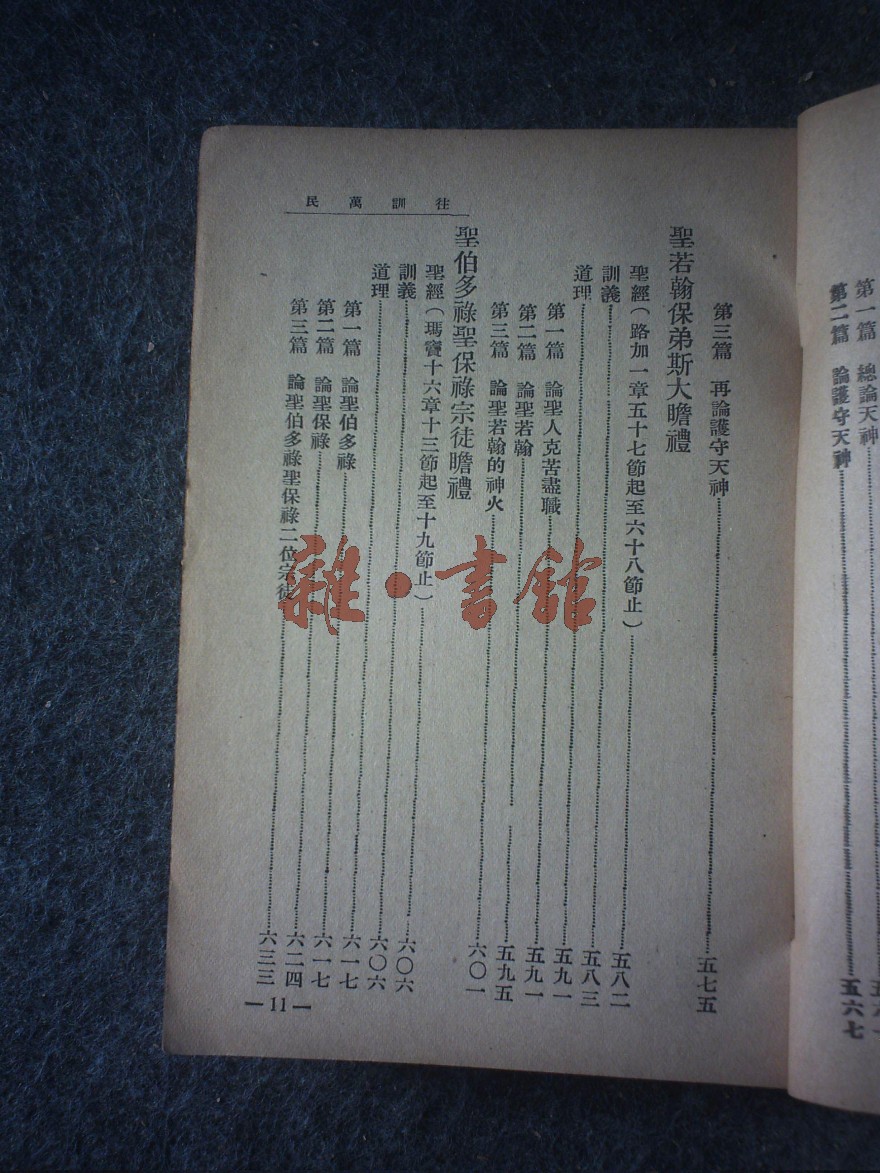 第一篇 總論天神
第二篇 論護守天神……五六七
往訓萬民
第三篇 再論護守天神……五七五
聖若翰保弟斯大瞻禮
聖經(路加一章五十七節起至六十八節止)……五八二
訓義……五八三
道理……五九一
第一篇 論聖人克苦盡職……五九一
第二篇 論聖若翰……五九五
第三篇 論聖若翰的神火……六〇一
聖伯多祿聖保祿宗徒瞻禮
聖經(瑪竇十六章十三節起至十九節止)……六〇六
訓義……六〇六
道理……六一七
第一篇 論聖伯多祿……六一七
第二篇 論聖保祿……六二四
第三篇 論聖伯多祿聖保祿二位宗徒……六三三
—11—
雜·書館